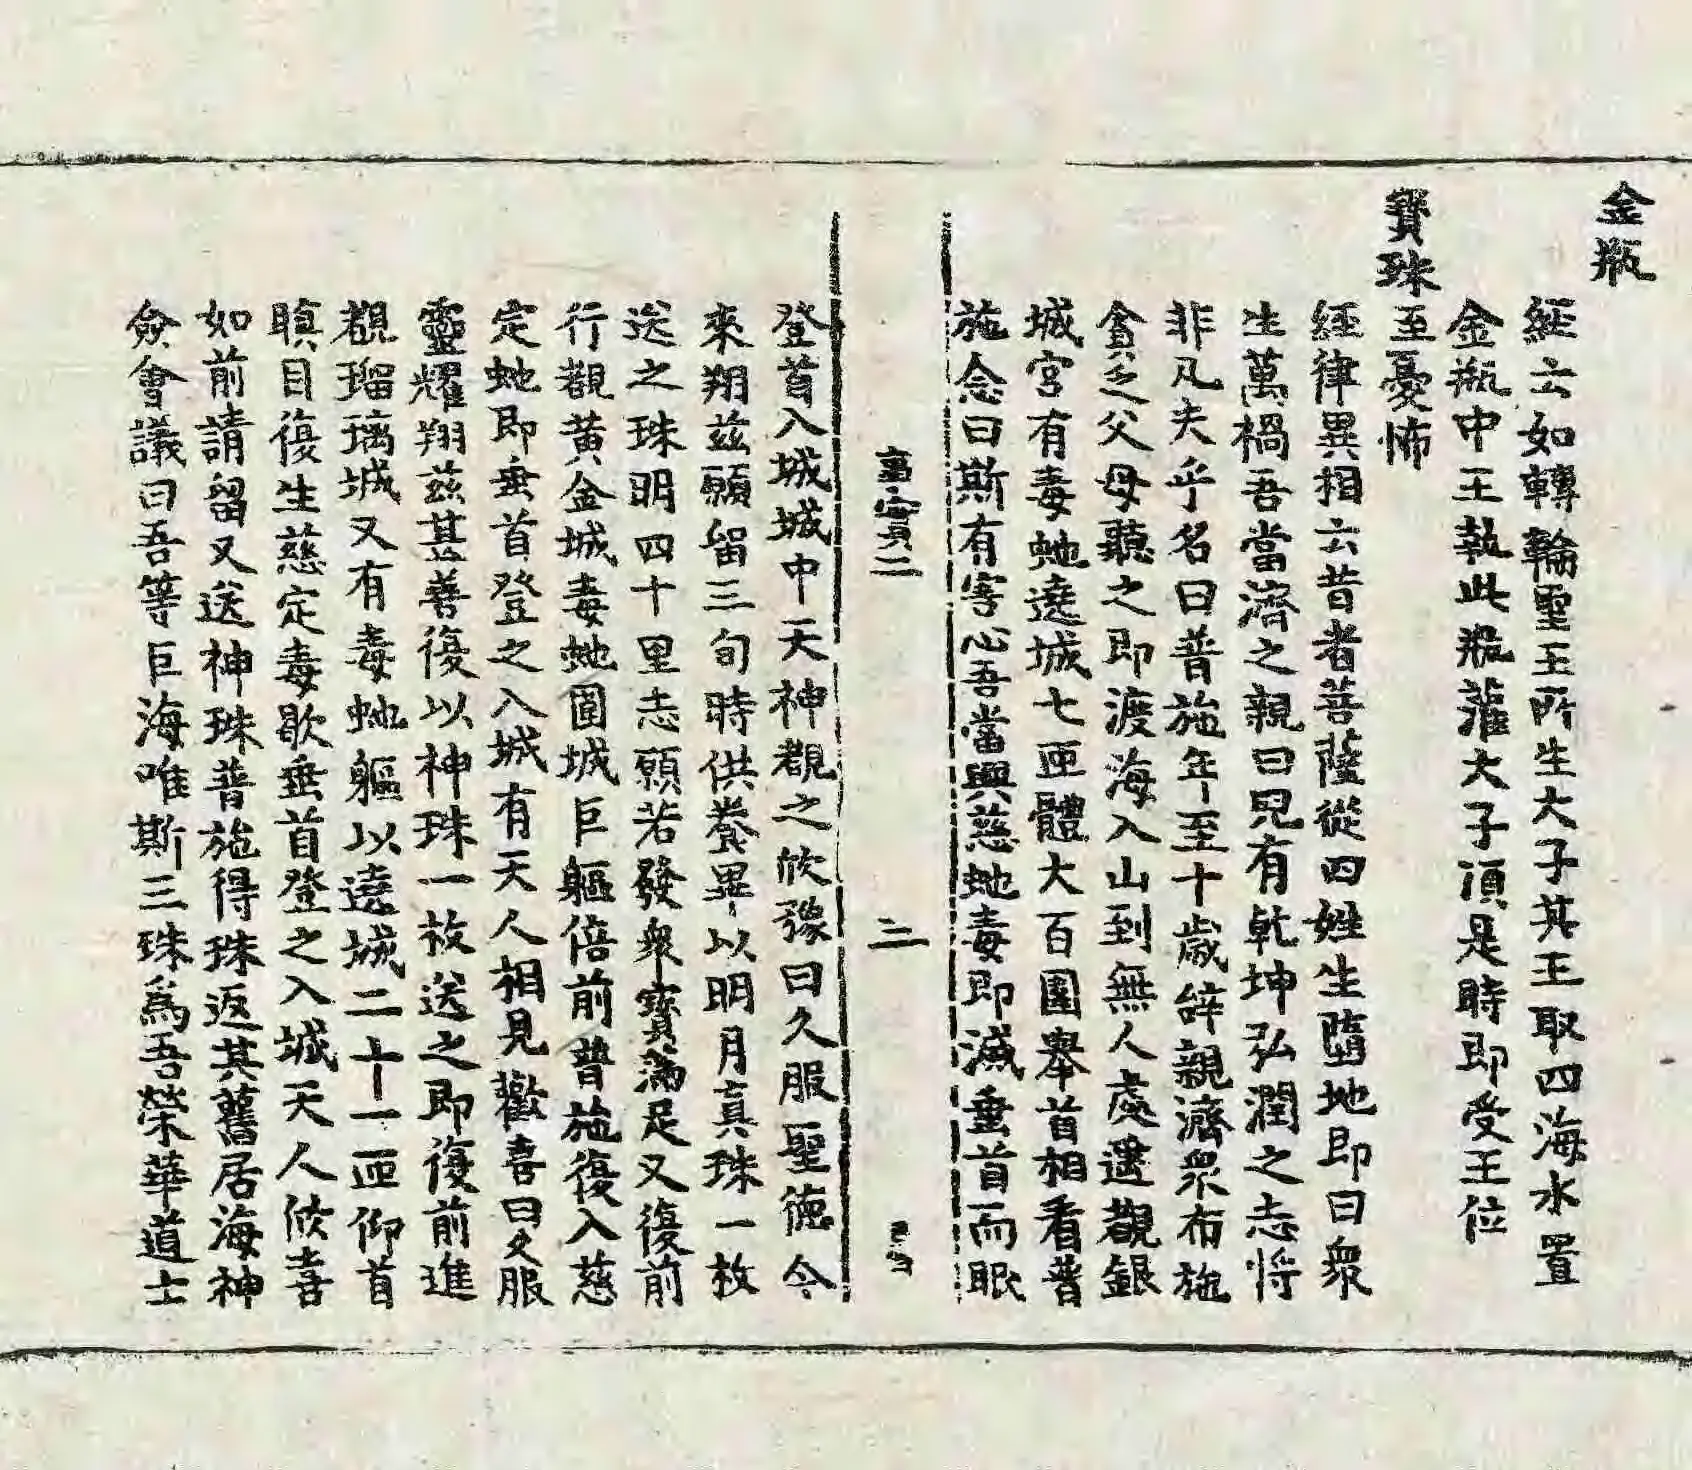 金瓶
經云如轉輪聖王所生大子其王取四海水置
金瓶中王執此瓶灌大子頂是時即受王位
寶珠至憂怖
經律異相云昔者菩薩從四姓生墮地即曰衆
生萬禍吾當濟之親曰兒有乾坤弘潤之志將
非凡夫乎名曰普施年至十歲辞親濟衆布施
貪乏父母聽之即渡海入山到無人處遥覩銀
城宮有毒虵遶城七匝體大百圍舉首相看普
施念曰斯有害心吾當興慈虵毒即滅垂首而眠
事實二
三
登首入城城中一天神覩之欣豫曰久服聖德令
來翔茲願留三旬時供養畢以明月真珠一枚
送之珠明四十里志願若發衆寶滿足又復前
行觀黄金城毒虵圍城巨軀倍前普施復入慈
定虵即垂首登之入城有天人相見歡喜曰久服
靈耀翔茲甚善復以神珠一枚送之即復前進
覩瑠璃城又有毒虵軀以遶城二十一匝仰首
瞋目復生慈定毒歇垂首登之入城天人欣喜
如前請留又送神珠普施得珠返其舊居海神
僉會議曰吾等巨海唯斯三珠爲吾榮華道士